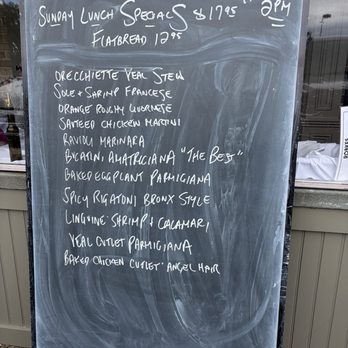 Sunday Lunch Specials $17.95
2PM
Flatbread 12.95
Orecchiette Veal Stew
Sole + Shrimp Francese
Orange Roughy Livornese
Sauteed Chicken Martini
Ravioli Marinara
Bucatini Amatriciana "The Best"
Baked Eggplant Parmigiana
Spicy Rigatoni Bronx Style
Linguine: Shrimp + Calamari
Veal Cutlet Parmigiana
Baked Chicken Cutlet: Angel Hair